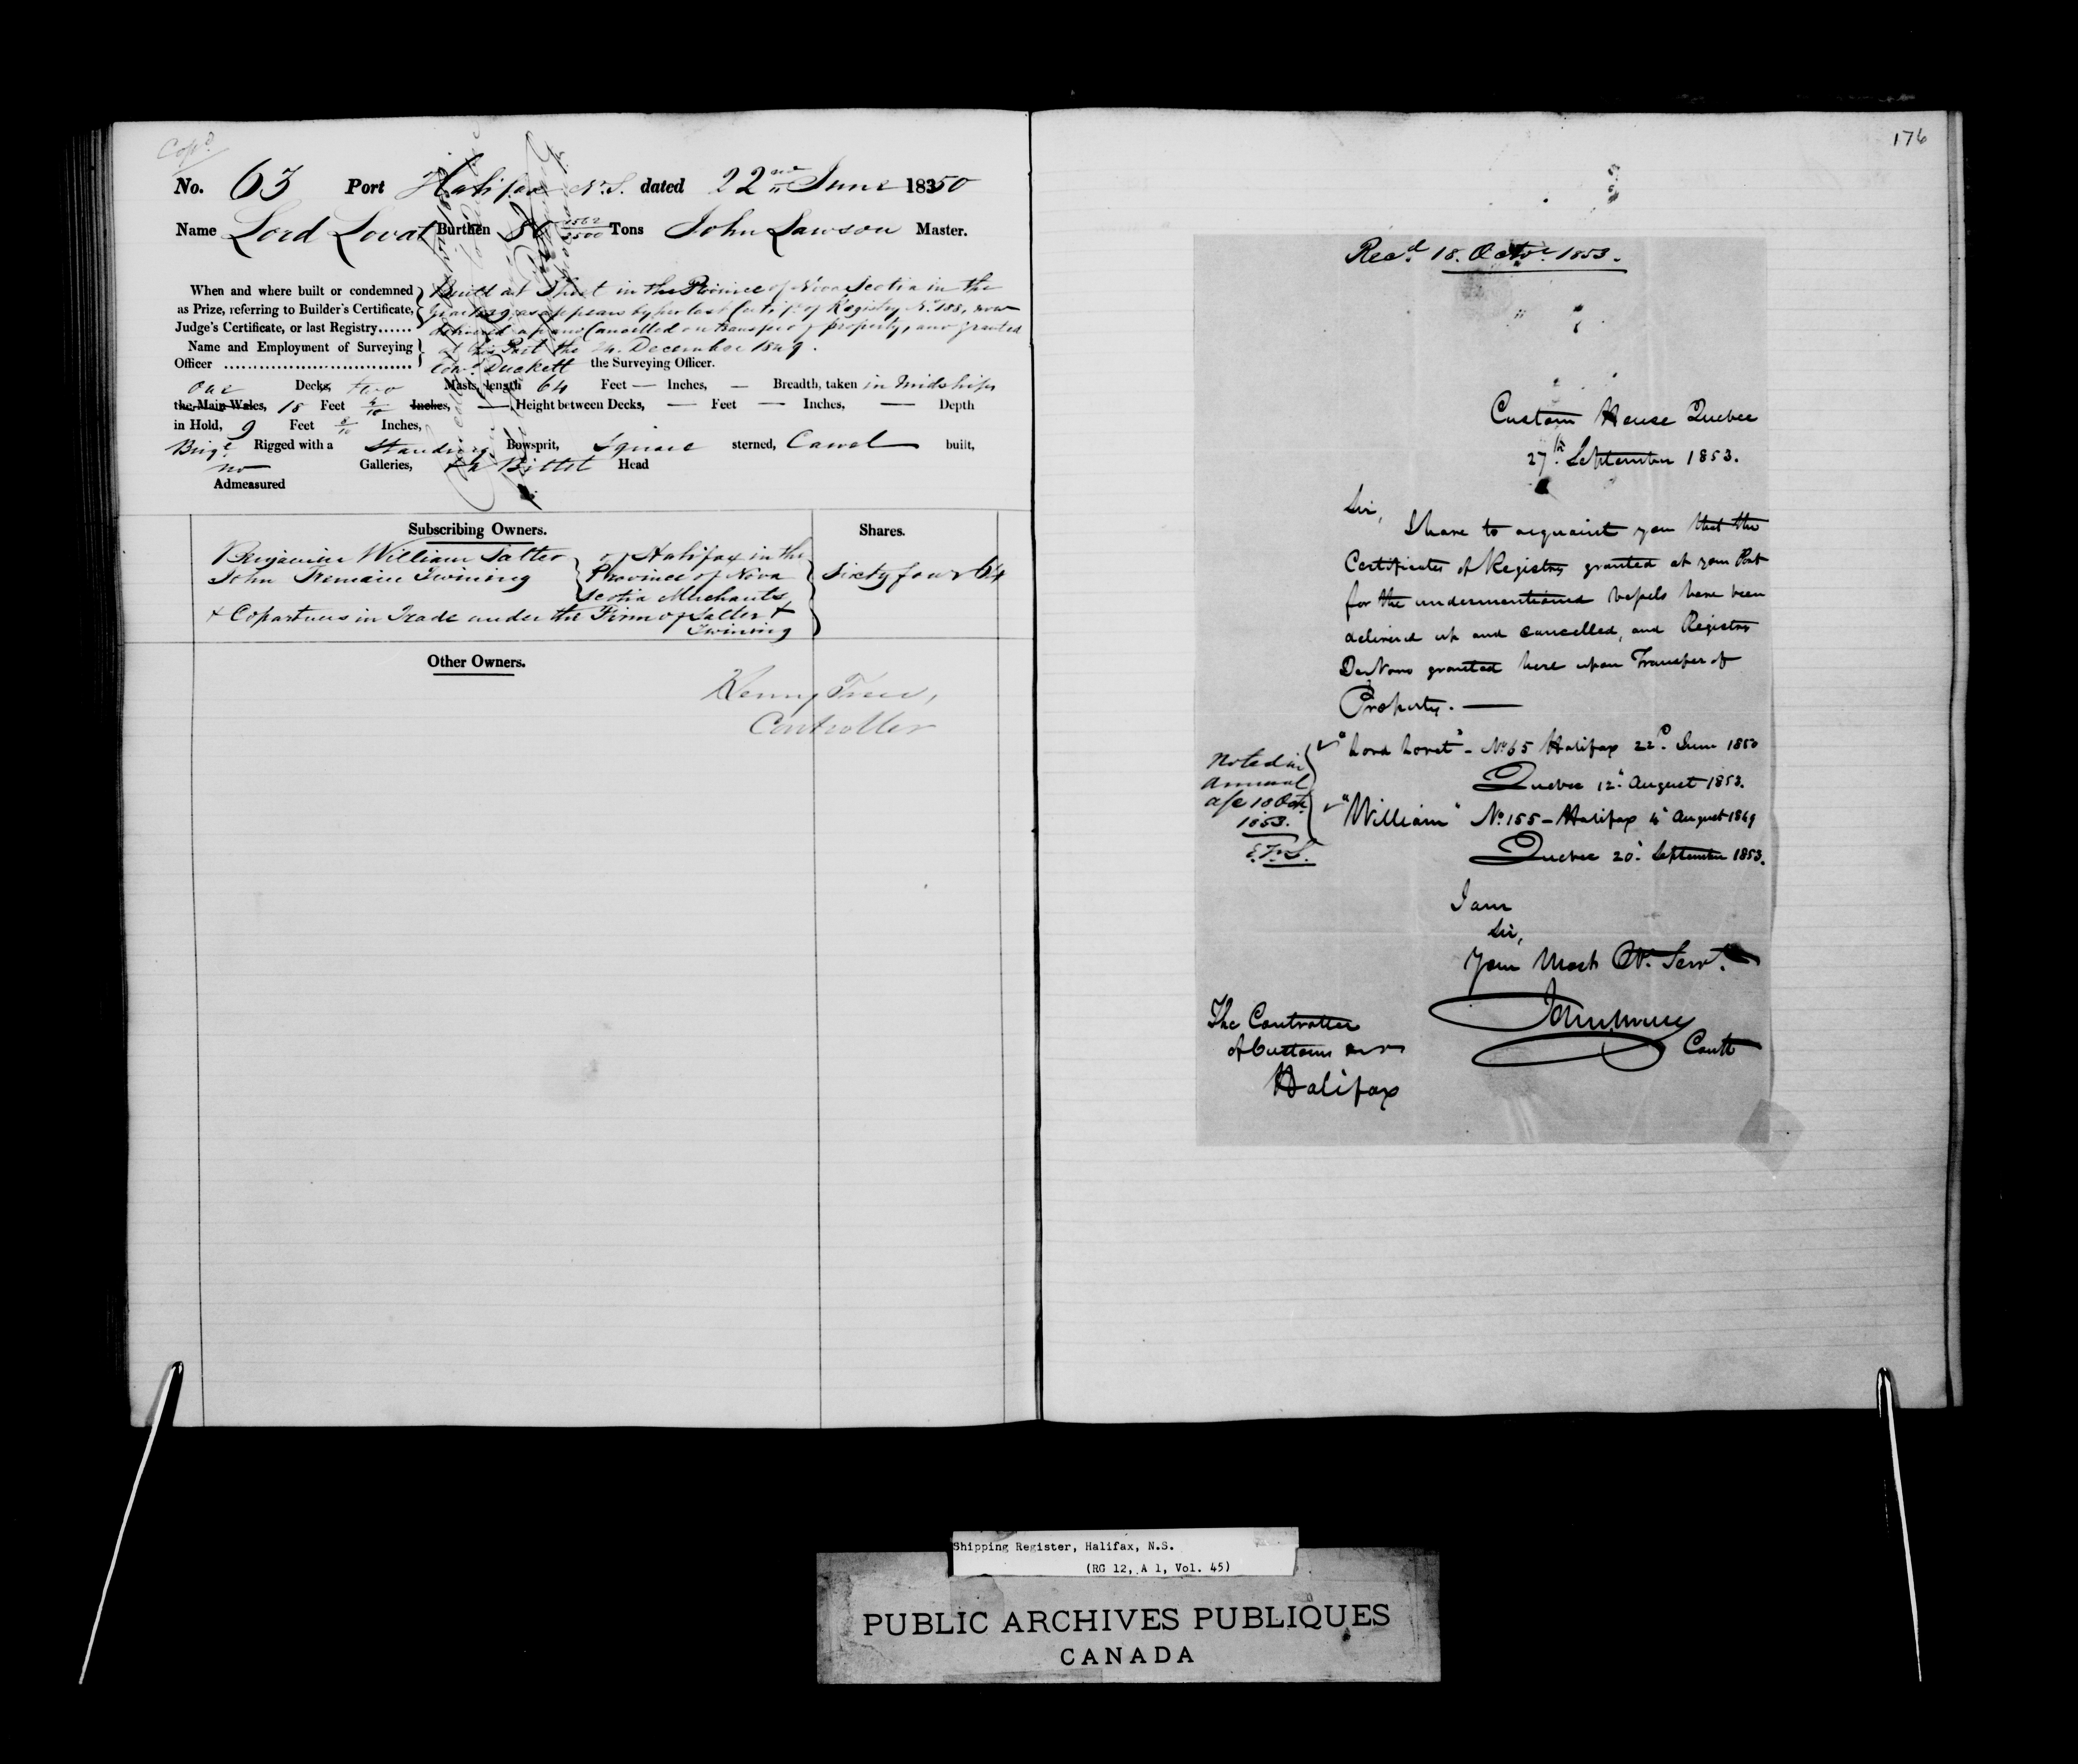 Cop.d
No. 63 Port Halifax N.S. dated 22nd June 18350
Name Lord Lovat Burthen 80 1562/3500 Tons John Lawson Master.
When and where built or condemned
as Prize, referring to Builder's Certificate,
Judge's Certificate, or last Registry......
Built at Sheet in the Province of Nova Scotia in the
year as appears by her last Certif.te of Registry N.o 188, now
delivered up and Cancelled on transfer of property, and granted
at this Port the 24. December 1849.
Name and Employment of Surveying
Officer
Edw.d Duckett the Surveying Officer.
One Decks, two Masts, length 64 Feet — Inches, — Breadth, taken in Midships
the Main Wales, 18 Feet 4/10 Inches, — Height between Decks, — Feet — Inches, — Depth
in Hold, 9 Feet 8/10 Inches,
Brig.e Rigged with a Standing Bowsprit, Square sterned, Carvel built,
no Galleries, & Billet Head
Admeasured
Subscribing Owners. Shares.
Benjamin William Salter
John Tremain Twining
of Halifax in the
Province of Nova
Scotia Merchants
& Copartners in Trade under the Firm of Salter &
Twining
Sixty four 64
Other Owners.
Henry Trew,
Controller
176
Rec.d 18. Octo.r 1853.
Custom House Quebec
27.th September 1853.
Sir,
I have to acquaint you that the
Certificates of Registry granted at your Port
for the undermentioned Vessels have been
delivered up and cancelled, and Registry
De Novo granted here upon Transfer of
Property. —
"Lord Lovat" - No 65 Halifax 22d. June 1850
Quebec 12. August 1853.
"William" No. 155 - Halifax 4 August 1849
Quebec 20. September 1853.
Noted in
Annual
a/c 18 Oct.
1853.
I am
Sir,
Your Most Ob. Serv.t
Contr
The Controller
of Customs
Halifax
Shipping Register, Halifax, N.S.
(RG 12, A 1, Vol. 45)
PUBLIC ARCHIVES PUBLIQUES
CANADA